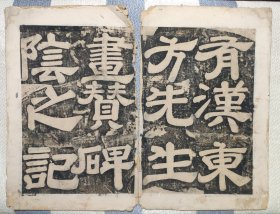 有漢東
方先生
畫贊碑
陰之記